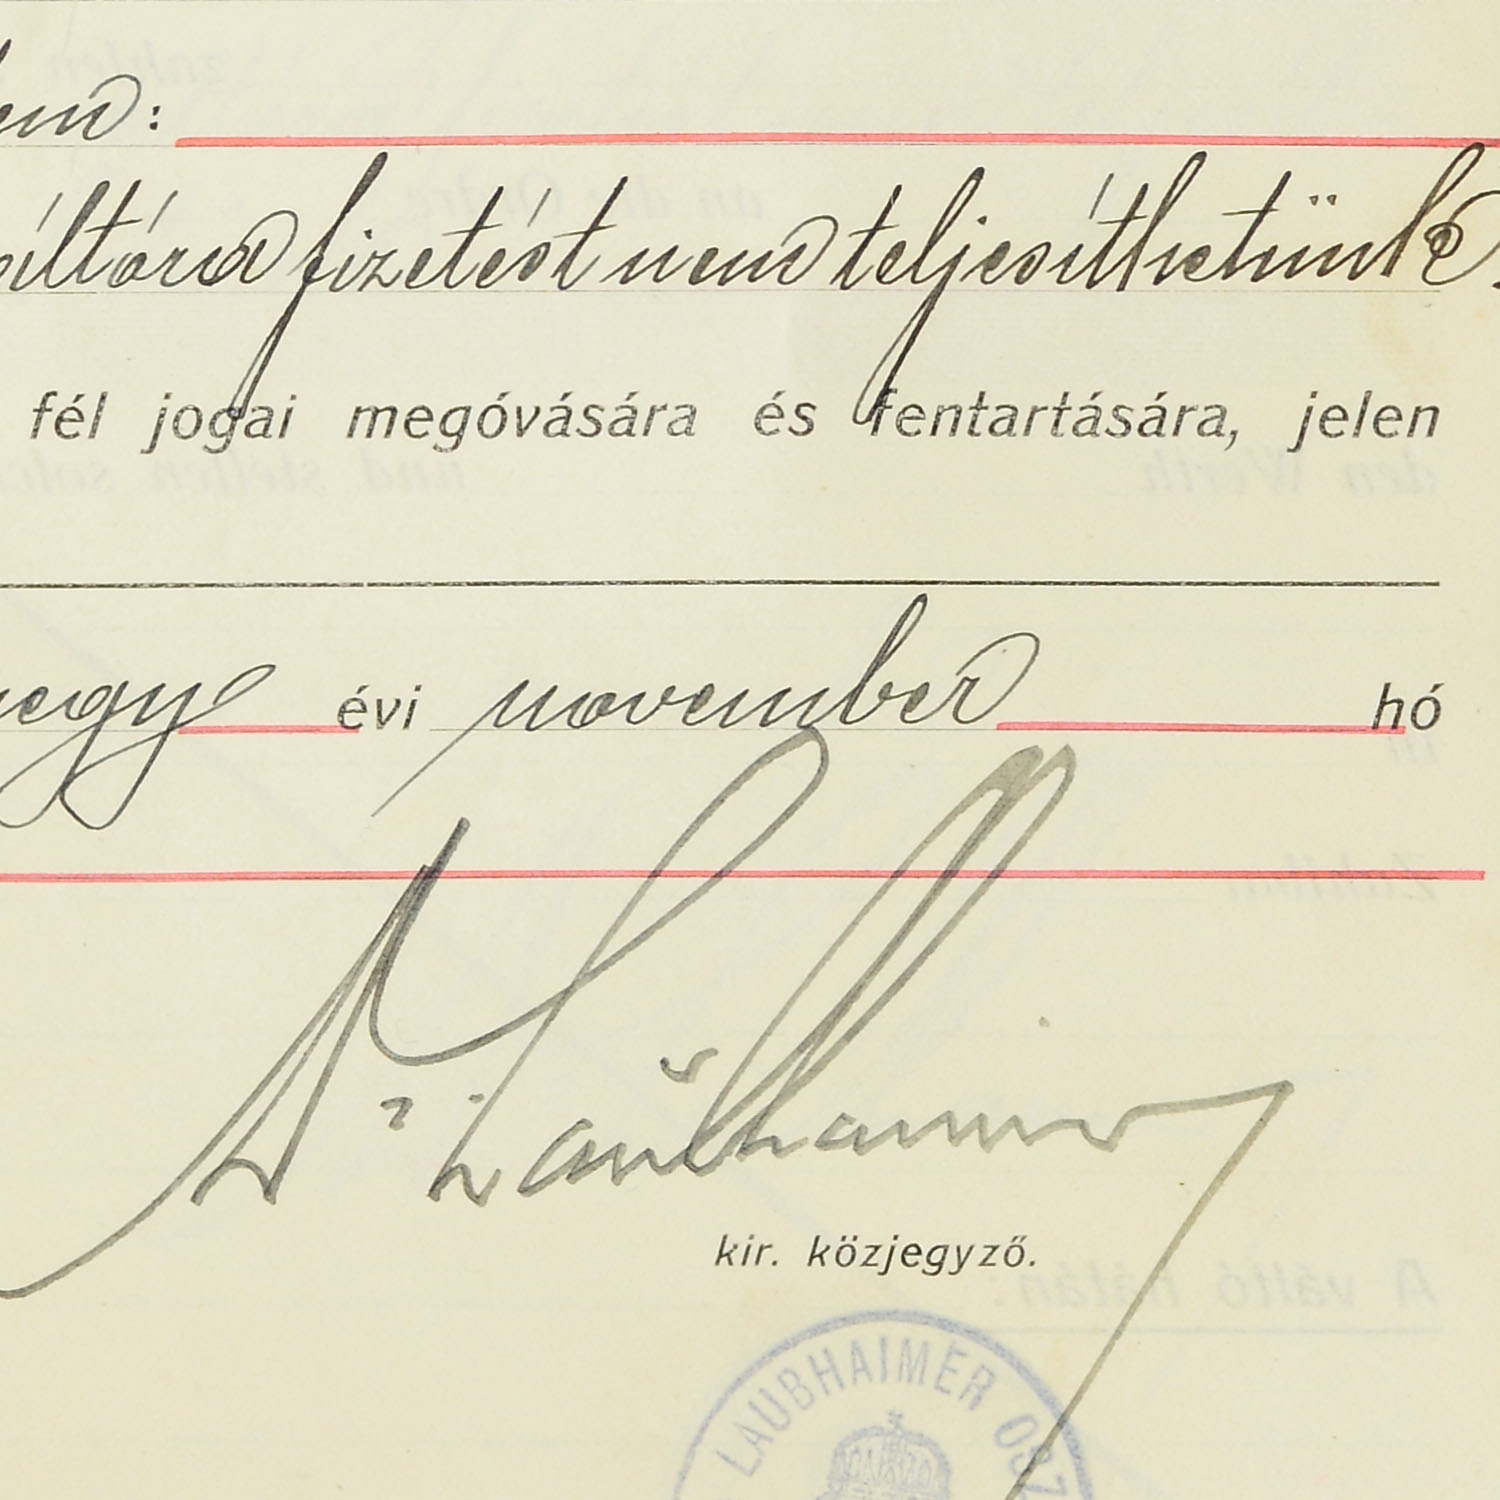 váltóra fizetést nem teljesíthetünk.
fél jogai megóvására és fentartására, jelen
évi november hó
Dr Laubhaimer
kir. közjegyző.
A váltó hátán:
LAUBHAIMER OSZ